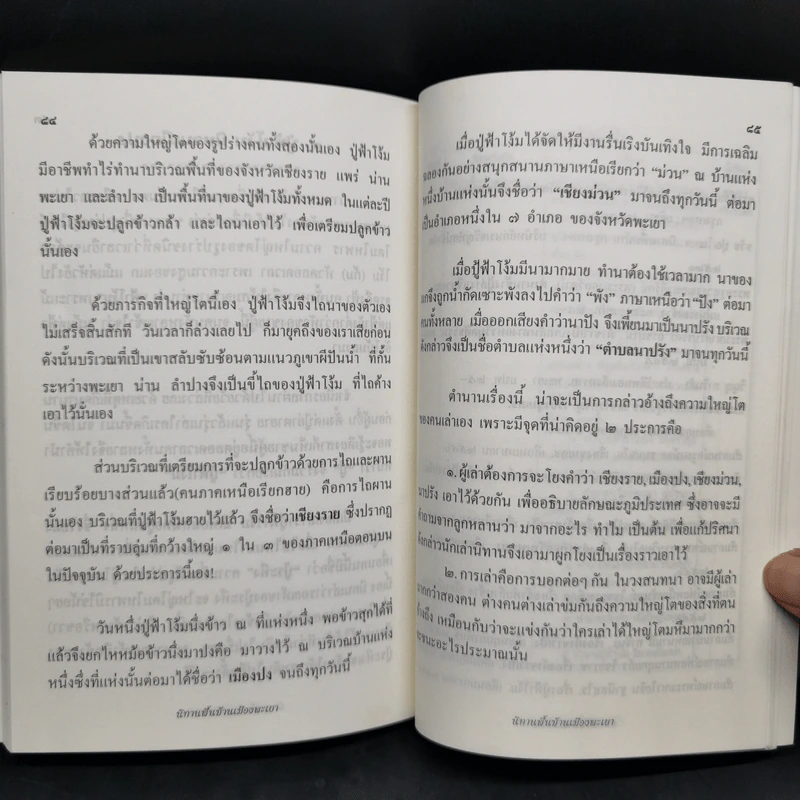 ๘๔
ด้วยความใหญ่โตของรูปร่างคนทั้งสองนั้นเอง ปู่ฟ้าโง้ม
มีอาชีพทำไร่ทำนาบริเวณพื้นที่ของจังหวัดเชียงราย แพร่ น่าน
พะเยา และลำปาง เป็นพื้นที่นาของปู่ฟ้าโง้มทั้งหมด ในแต่ละปี
ปู่ฟ้าโง้มจะปลูกข้าวกล้า และไถนาเอาไว้ เพื่อเตรียมปลูกข้าว
นั้นเอง
ด้วยภารกิจที่ใหญ่โตนี้เอง ปู่ฟ้าโง้มจึงไถนาของตัวเอง
ไม่เสร็จสิ้นสักที วันเวลาก็ล่วงเลยไป ก็มายุคถึงของเราเสียก่อน
ดังนั้นบริเวณที่เป็นเขาสลับซับซ้อนตามแนวภูเขาผีปันน้ำ ที่กั้น
ระหว่างพะเยา น่าน ลำปางจึงเป็นขี้ไถของปู่ฟ้าโง้ม ที่ไถค้าง
เอาไว้นั้นเอง
ส่วนบริเวณที่เตรียมการที่จะปลูกข้าวด้วยการไถและผาน
เรียบร้อยบางส่วนแล้ว(คนภาคเหนือเรียกฮาย) คือการไถผาน
นั้นเอง บริเวณที่ปู่ฟ้าโง้มฮายไว้แล้ว จึงชื่อว่าเชียงราย ซึ่งปรากฏ
ต่อมาเป็นที่ราบลุ่มที่กว้างใหญ่ ๑ ใน ๓ ของภาคเหนือตอนบน
ในปัจจุบัน ด้วยประการนี้เอง!
วันหนึ่งปู่ฟ้าโง้มนึ่งข้าว ณ ที่แห่งหนึ่ง พอข้าวสุกได้ที่
แล้วจึงยกไหหม้อข้าวนึ่งมาปงคือ มาวางไว้ ณ บริเวณบ้านแห่ง
หนึ่งซึ่งที่แห่งนั้นต่อมาได้ชื่อว่า เมืองปง จนถึงทุกวันนี้
นิทานพื้นบ้านเมืองพะเยา
๘๕
เมื่อปู่ฟ้าโง้มได้จัดให้มีงานรื่นเริงบันเทิงใจ มีการเฉลิม
ฉลองกันอย่างสนุกสนานภาษาเหนือเรียกว่า “ม่วน” ณ บ้านแห่ง
หนึ่งบ้านแห่งนั้นจึงชื่อว่า “เชียงม่วน” มาจนถึงทุกวันนี้ ต่อมา
เป็นอำเภอหนึ่งใน ๗ อำเภอ ของจังหวัดพะเยา
เมื่อปู่ฟ้าโง้มมีนามากมาย ทำนาต้องใช้เวลามาก นาของ
แกจึงถูกน้ำกัดเซาะพังลงไปคำว่า “พัง” ภาษาเหนือว่า “ปัง” ต่อมา
คนทั้งหลาย เมื่อออกเสียงคำว่านาปัง จึงเพี้ยนมาเป็นนาปรัง บริเวณ
ดังกล่าวจึงเป็นชื่อตำบลแห่งหนึ่งว่า “ตำบลนาปรัง” มาจนทุกวันนี้
ตำนานเรื่องนี้ น่าจะเป็นการกล่าวอ้างถึงความใหญ่โต
ของคนเล่าเอง เพราะมีจุดที่น่าคิดอยู่ ๒ ประการคือ
๑. ผู้เล่าต้องการจะโยงคำว่า เชียงราย, เมืองปง, เชียงม่วน,
นาปรัง เอาไว้ด้วยกัน เพื่ออธิบายลักษณะภูมิประเทศ ซึ่งอาจจะมี
คำถามจากลูกหลานว่า มาจากอะไร ทำไม เป็นต้น เพื่อแก้ปริศนา
ดังกล่าวนักเล่านิทานจึงเอามาผูกโยงเป็นเรื่องราวเอาไว้
๒. การเล่าคือการบอกต่อๆ กัน ในวงสนทนา อาจมีผู้เล่า
มากกว่าสองคน ต่างคนต่างเล่าข่มกันถึงความใหญ่โตของสิ่งที่ตน
อ้างถึง เหมือนกับว่าจะแข่งกันว่าใครเล่าได้ใหญ่โตมหึมามากกว่า
จะชนะอะไรประมาณนั้น
นิทานพื้นบ้านเมืองพะเยา